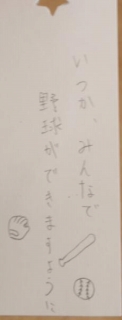 いつか、みんなで
野球ができますように